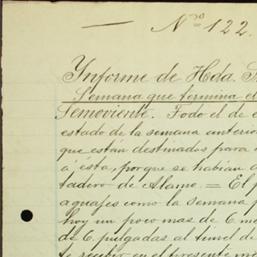 Nº 122.
Informe de Hda. S
Semana que termina el
Semoviente. Todo el de e
estado de la semana anterio
que están destinados para
á ésta, porque se habian a
tadero de Alamo. = El p
aguajes como la semana p
hoy un poco mas de 6 me
de 6 pulgadas al tunel de
te recibir en el presente me